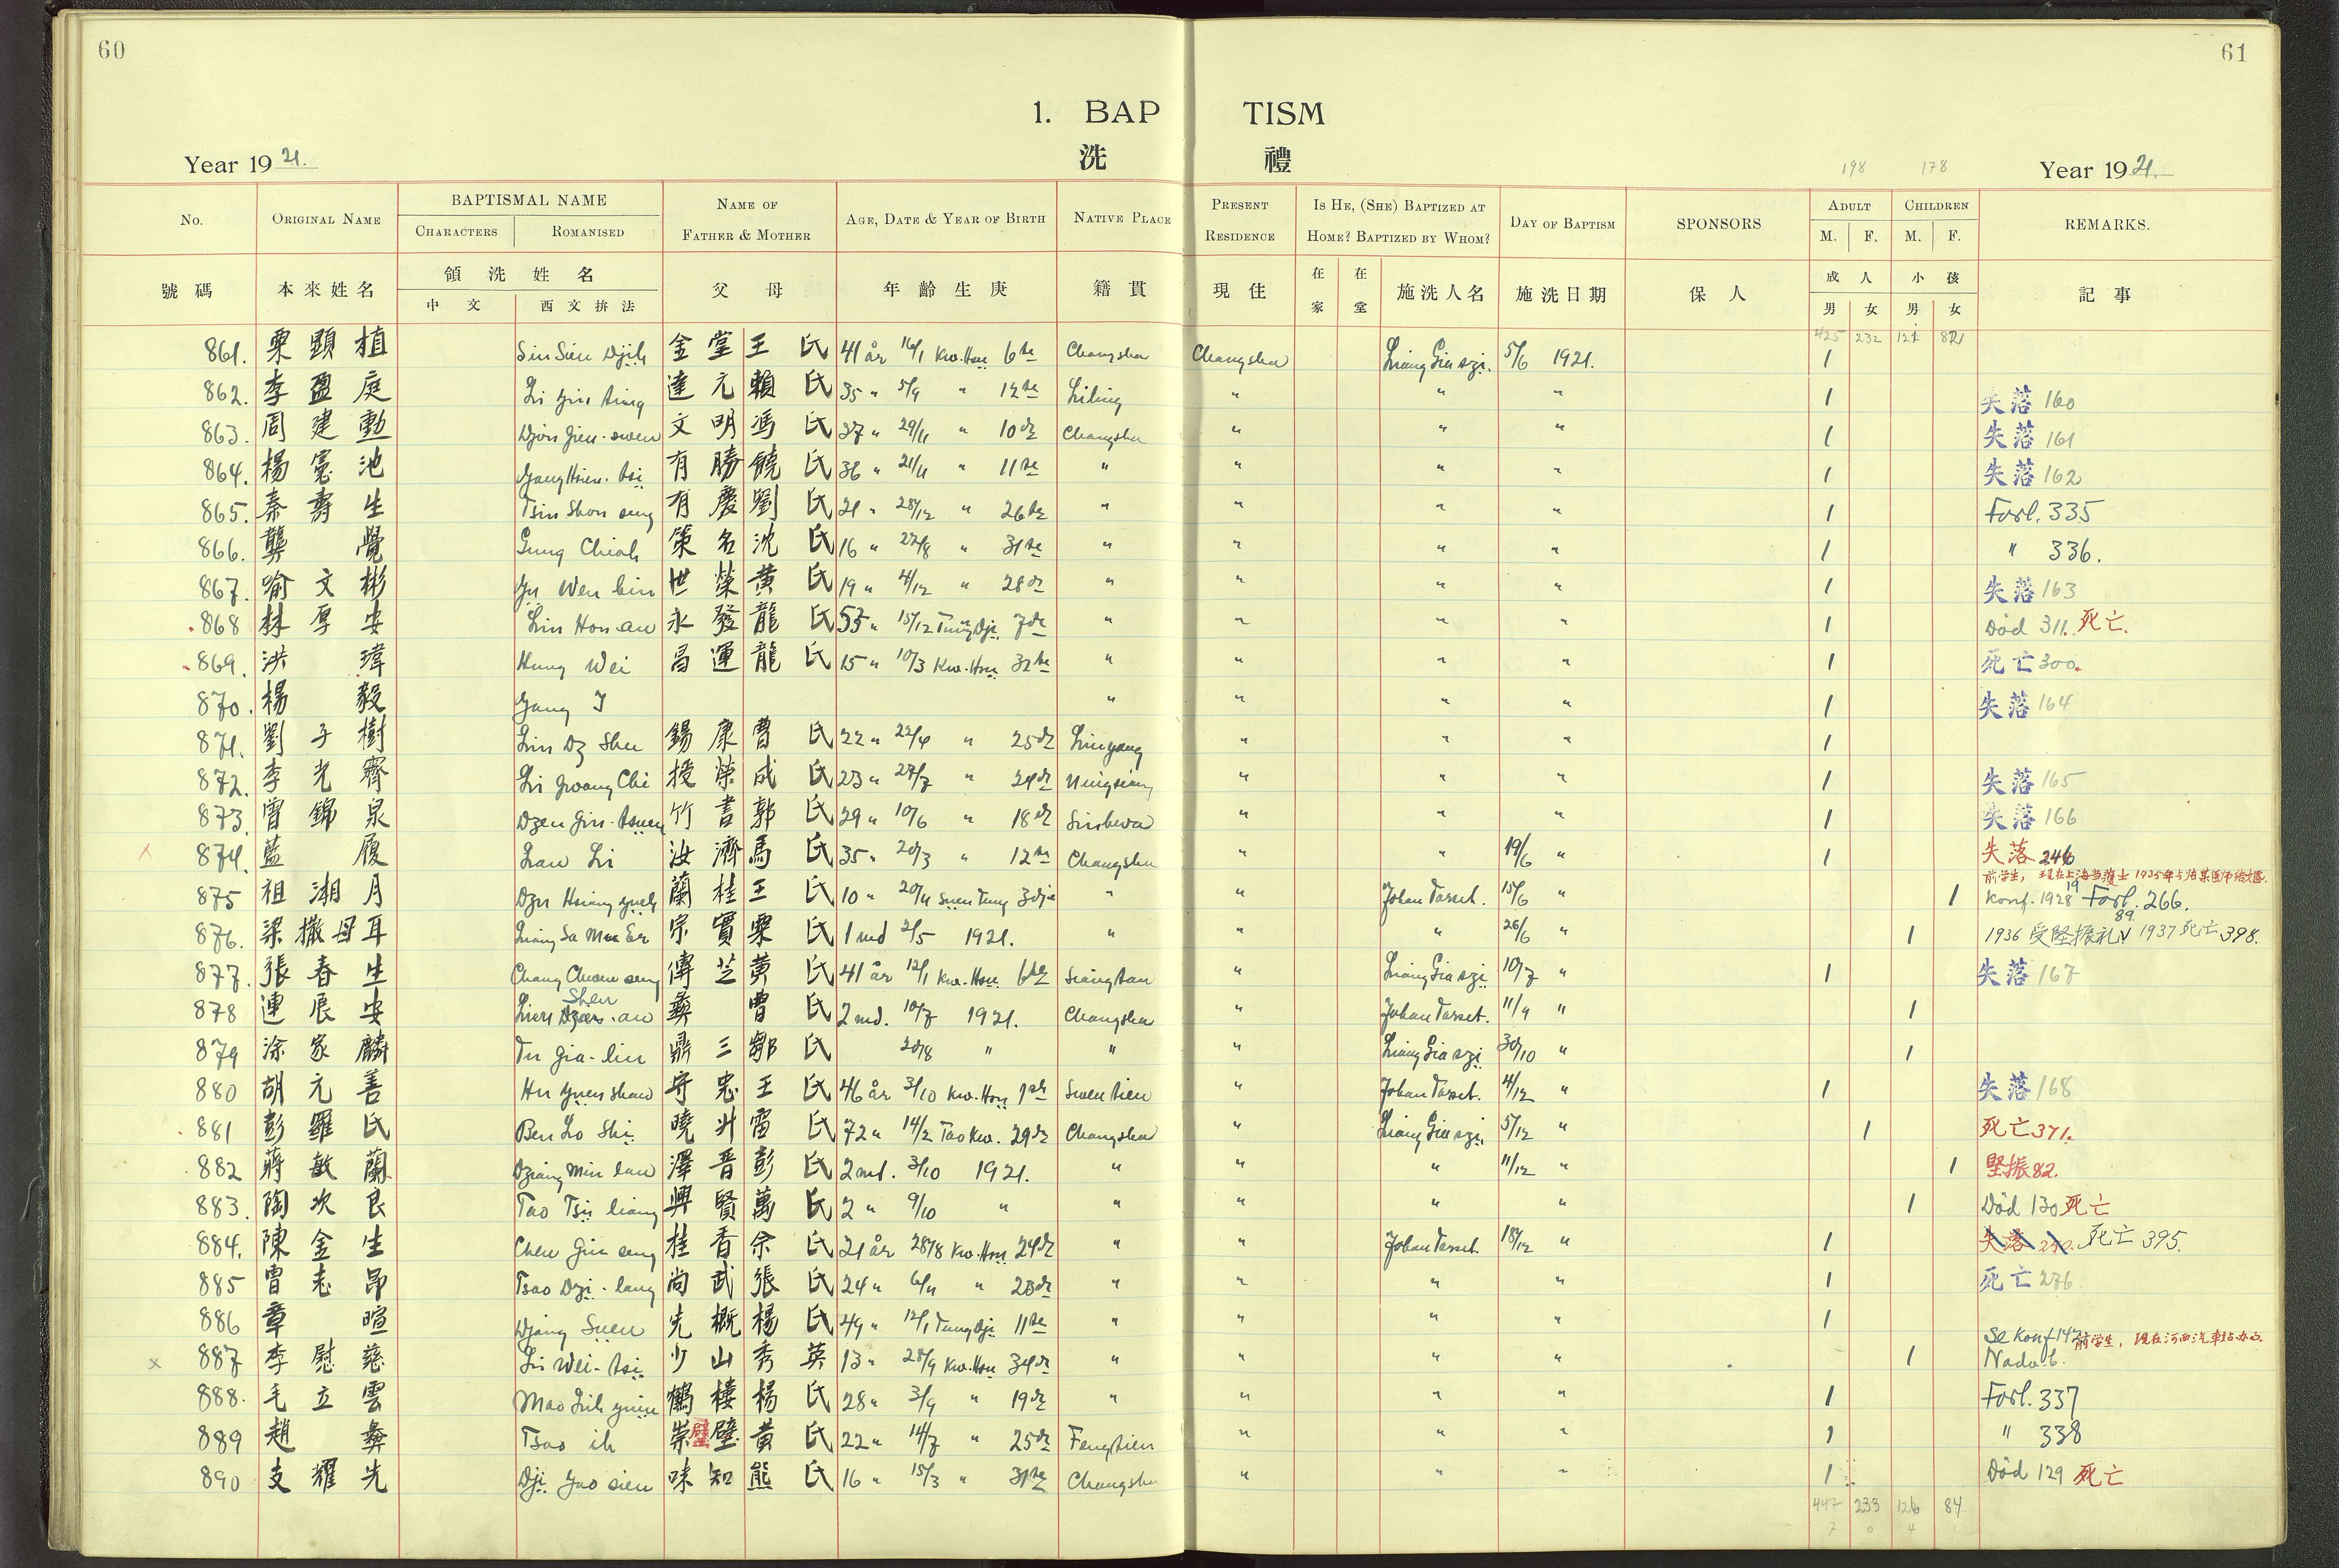 60
61
1. BAP TISM
洗 禮
Year 19 21.
198 178
Year 19 21.
No. ORIGINAL NAME BAPTISMAL NAME CHARACTERS ROMANISED NAME OF FATHER & MOTHER AGE, DATE & YEAR OF BIRTH NATIVE PLACE PRESENT RESIDENCE IS HE, (SHE) BAPTIZED AT HOME? BAPTIZED BY WHOM? DAY OF BAPTISM SPONSORS ADULT M. F. CHILDREN M. F. REMARKS.
號碼 本來姓名 領洗姓名 中文 西文拚法 父母 年齡生庚 籍貫 現住 在家 在堂 施洗人名 施洗日期 保人 成人 男 女 小孩 男 女 記事
425 232 121 82
861. 栗顯植 Sin Sien Djih 金堂 王氏 41 år 16/1 Kw. Hsu 6te Changsha Changsha Liang Gia szi. 5/6 1921. 1
862. 李盈庭 Li Yin ting 達元 賴氏 35 " 5/9 " 12te Liling " " " 1 失落 160
863. 周建勳 文明 馮氏 37 " 29/11 " 10de Changsha " " " 1 失落 161
864. 楊憲池 Yang Hsien-tsi 有勝 饒氏 36 " 21/11 " 11te " " " " 1 失落 162
865. 秦壽生 Tsin Shou seng 有慶 劉氏 21 " 28/12 " 26te " " " " 1 Forl. 335
866. 龔覺 Gung Chioh 策名 沈氏 16 " 27/8 " 31te " " " " 1 " 336.
867. 喻文彬 Yu Wen bin 世榮 黃氏 19 " 4/12 " 28de " " " " 1 失落 163
868 林厚安 Lin Hou an 永發 龍氏 53 " 15/12 Tung Dji 7de " " " " 1 Död 311. 死亡.
869. 洪瑋 Hung Wei 昌運 龍氏 15 " 10/3 Kw. Hsu 32te " " " " 1 死亡 300.
870. 楊毅 Yang I " " " " 1 失落 164
871. 劉子樹 Liu Dz Shu 錫康 曹氏 22 " 22/4 " 25de Liuyang " " " 1
872. 李光齊 Li Gwang Chi 授榮 成氏 23 " 27/7 " 24de Ningsiang " " " 1 失落 165
873. 曾錦泉 Dzen Gin-tsuen 竹書 郭氏 29 " 10/6 " 18de Sinhwa " " " 1 失落 166
x 874. 藍履 Lan Li 汝濟 馬氏 35 " 20/3 " 12te Changsha " " 19/6 " 1 失落 246
875 祖湘月 Dzu Hsiang yueh 蘭桂 王氏 10 " 20/11 Suen Tung 3dje " " Johan Tasset. 15/6 " 1 前学生, 現在上海当護士 1935年与 Konf. 1928 19 Forl. 266.
876. 梁撒母耳 Liang Sa Mu Er 宗實 栗氏 1 md 2/5 1921. " " " 26/6 " 1 1936 受堅振礼 89. 1937 死亡 398.
877. 張春生 Chang Chuen seng 傅芝 黃氏 41 år 12/1 Kw. Hsu 6te Siangtan " Liang Gia szi 10/7 " 1 失落 167
878 連展安 Lien Shen an 彝 曹氏 2 md. 10/7 1921. Changsha " Johan Tasset. 11/9 " 1
879 涂家麟 Tu Gia-lin 鼎三 鄒氏 20/8 " " " Liang Gia szi 30/10 " 1
880 胡元善 Hu Yuen shan 守忠 王氏 46 år 3/10 Kw. Hsu 1ste " Johan Tasset. 4/12 " 1 失落 168
881 彭羅氏 Pen Lo Shi 曉升 雷氏 72 " 14/2 Tao Kw. 29de Changsha " Liang Gia szi 5/12 " 1 死亡 371.
882 蔣敏蘭 Dziang Min lan 澤普 彭氏 2 md. 3/10 1921. " " " 11/12 " 1 堅振 82.
883. 陶次良 Tao Tsii liang 興賢 萬氏 2 " 9/10 " " " " " 1 Död 130 死亡
884. 陳金生 Chen Gin seng 桂香 余氏 21 år 28/8 Kw. Hsu 24de " " Johan Tasset. 18/12 " 1 失落 死亡 395.
885 曾志昂 尚武 張氏 24 " 6/11 " 23de " " " " 1 死亡 276
886 章暄 Djang Suen 先概 楊氏 49 " 12/1 Tung Dji 11te " " " " 1
x 887 李慰慈 Li Wei-tsi 少山 秀英 13 " 28/9 Kw. Hsu 34de " " " " 1 Se Konf 142 前学生, 現在河西汽車站办 Nadv. 6.
888. 毛立雲 Mao Lih yuin 鶴樓 楊氏 28 " 3/9 " 19de " " " " 1 Forl. 337
889 趙彝 Tsao ih 崇璧 黃氏 22 " 14/7 " 25de Fengtien " " " 1 " 338
890 支耀先 Dji Yao sien 味知 熊氏 16 " 15/3 " 31te Changsha " " " 1 Död 129 死亡
447 233 126 84
7 0 4